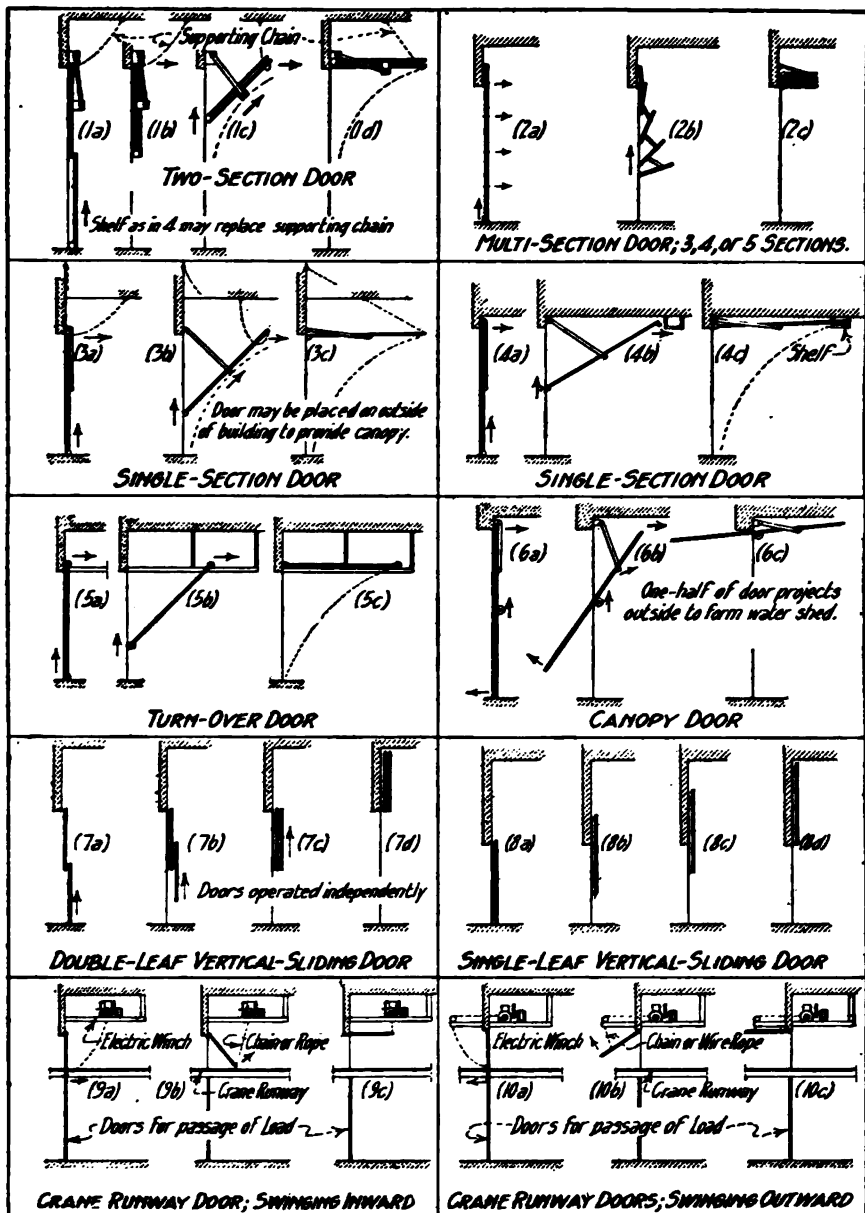 Supporting Chain
(1a) (1b) (1c) (1d)
TWO-SECTION DOOR
Shelf as in 4 may replace supporting chain
(2a) (2b) (2c)
MULTI-SECTION DOOR; 3, 4, or 5 SECTIONS.
(3a) (3b) (3c)
Door may be placed on outside
of building to provide canopy.
SINGLE-SECTION DOOR
(4a) (4b) (4c)
Shelf
SINGLE-SECTION DOOR
(5a) (5b) (5c)
TURN-OVER DOOR
(6a) (6b) (6c)
One-half of door projects
outside to form water shed.
CANOPY DOOR
(7a) (7b) (7c) (7d)
Doors operated independently
DOUBLE-LEAF VERTICAL-SLIDING DOOR
(8a) (8b) (8c) (8d)
SINGLE-LEAF VERTICAL-SLIDING DOOR
Electric Winch Chain or Rope
(9a) (9b) Crane Runway (9c)
Doors for passage of Load
CRANE RUNWAY DOOR; SWINGING INWARD
Electric Winch Chain or Wire Rope
(10a) (10b) Crane Runway (10c)
Doors for passage of Load
CRANE RUNWAY DOORS; SWINGING OUTWARD